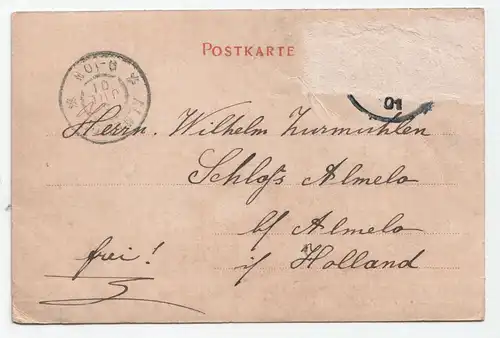 POSTKARTE
01
Herrn. Wilhelm Zurmühlen
Schloſs Almelo
b/ Almelo
frei!
i/ Holland